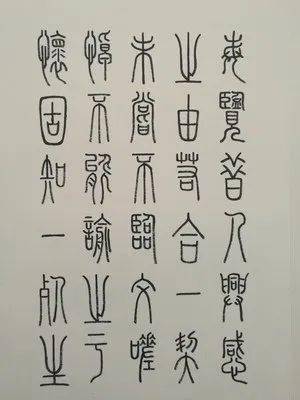 每覽昔人興感
之由若合一契
未嘗不臨文嗟
悼不能諭之于
懷固知一死生